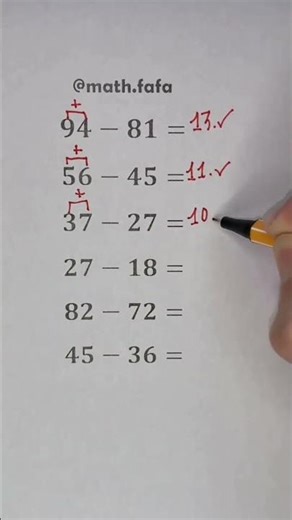 @math.fafa
+
94 – 81 = 13.✓
+
56 – 45 = 11.✓
+
37 – 27 = 10.
27 – 18 =
82 – 72 =
45 – 36 =